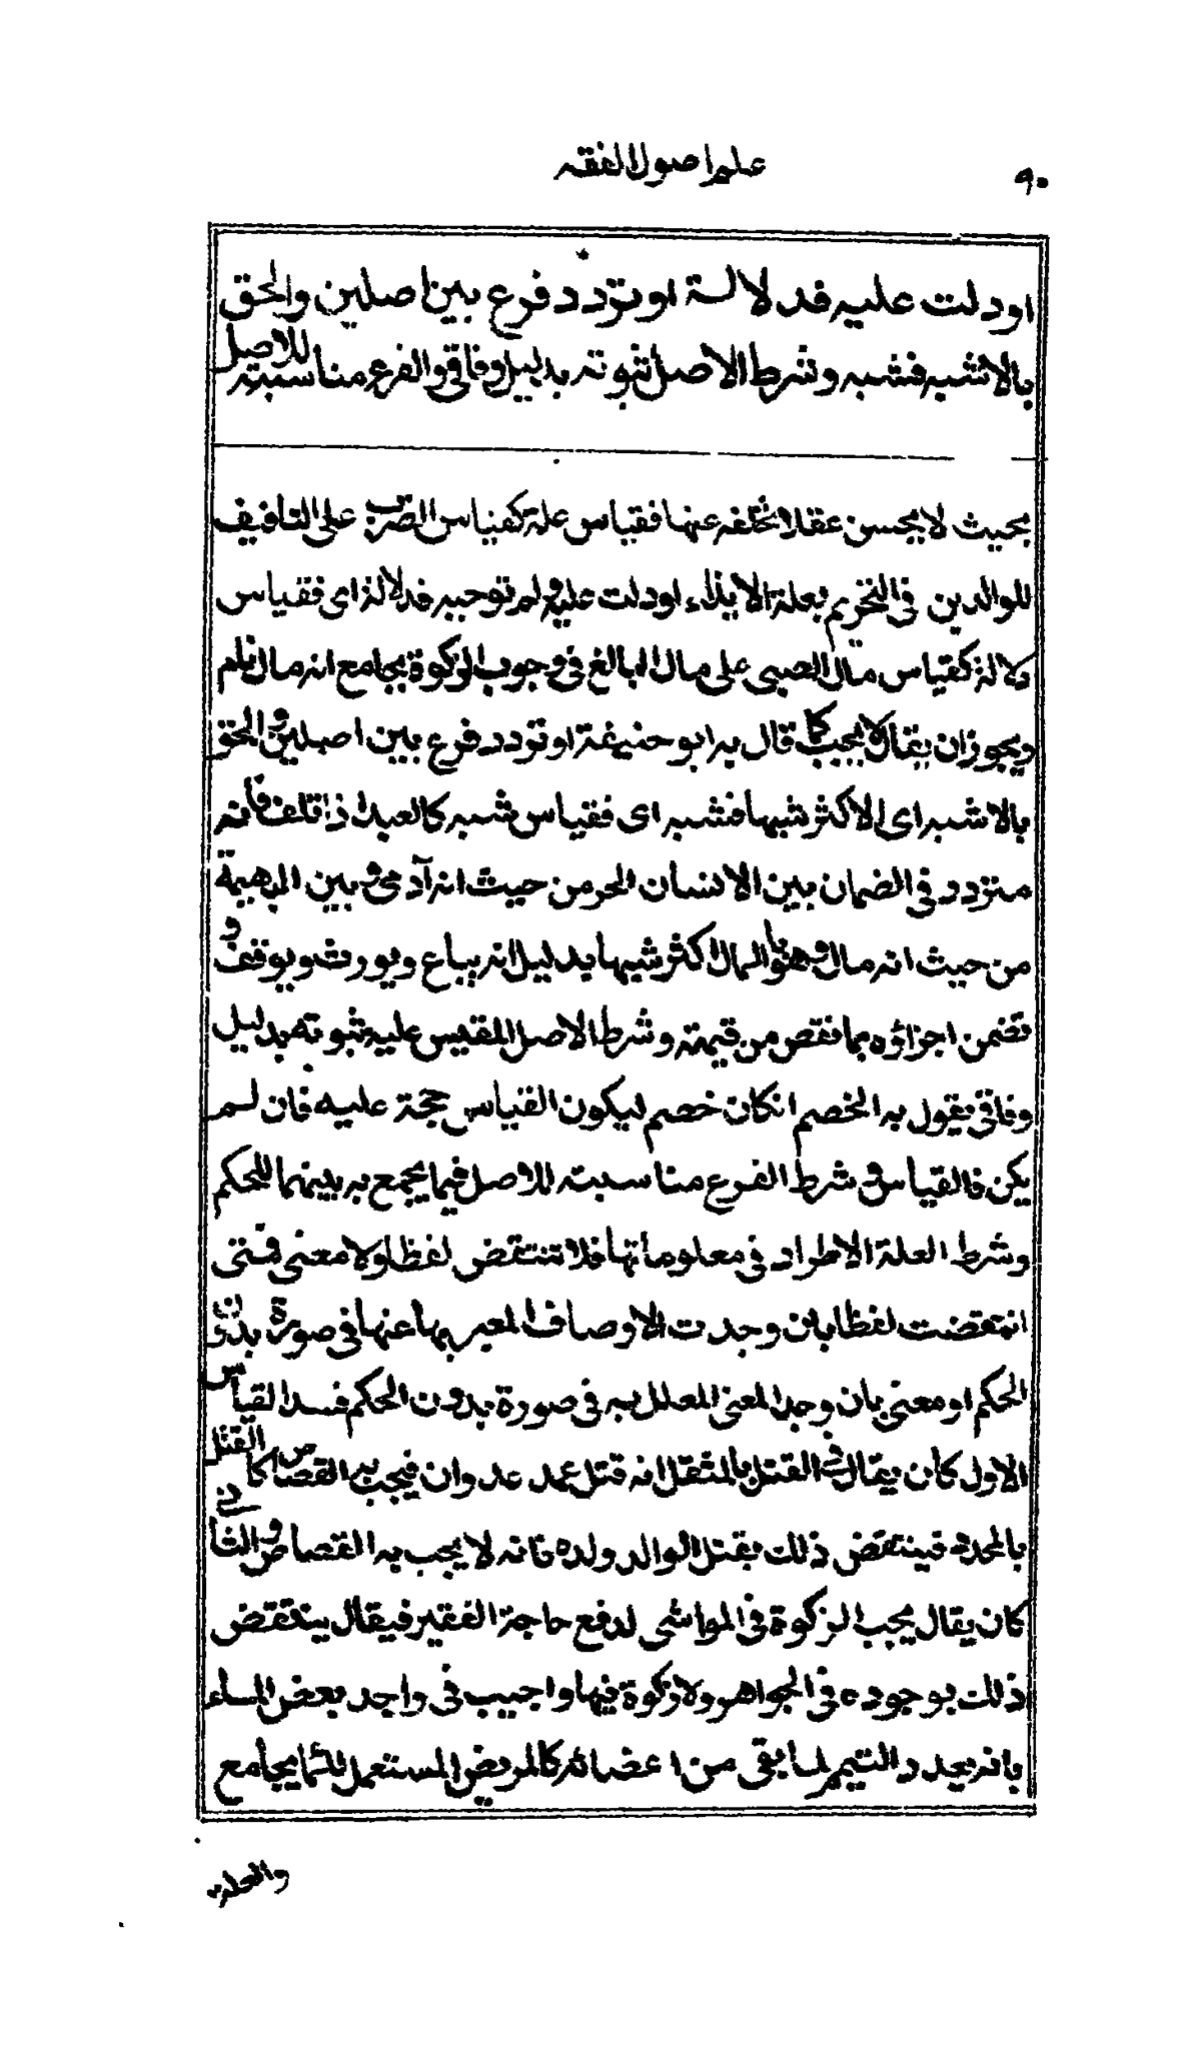 ٩٠
علم اصول الفقه
او دلت عليه فدلالة او تردد فرع بين اصلين والحق
بالاشبه فشبه وشرط الاصل ثبوته بدليل وفاقي والفرع مناسبته للاصل
بحيث لا يحسن عقلا تخلفه عنها فقياس علة كقياس الضرب على التافيف
للوالدين فى التحريم بعلة الايذاء او دلت عليه ولم توجبه فدلالة اى فقياس
دلالة كقياس مال الصبى على مال البالغ فى وجوب الزكوة بجامع انه مال نام
ويجوز ان يقال لا يجب كما قال به ابو حنيفة او تردد فرع بين اصلين والحق
بالاشبه اى الاكثر شبها فشبه اى فقياس شبه كالعبد اذا تلف فانه
متردد فى الضمان بين الانسان الحر من حيث انه آدمى وبين البهيمة
من حيث انه مال وهو بالمال اكثر شبها بدليل انه يباع ويورث ويوقف و
تضمن اجزاؤه بما نقص من قيمته وشرط الاصل المقيس عليه ثبوته بدليل
وفاقى يقول به الخصم انكان خصم ليكون القياس حجة عليه فان لم
يكن فالقياس فى شرط الفرع مناسبته للاصل فيما يجمع به بينهما للحكم
وشرط العلة الاطراد فى معلوماتها فلا تنتقض لفظا ولا معنى فمتى
انتقضت لفظا بان وجدت الاوصاف المعبر بها عنها فى صورة بدون
الحكم او معنى بان وجد المعنى المعلل به فى صورة بدون الحكم فسد القياس
الاول كان يقال فى القتل بالمثقل انه قتل عمد عدوان فيجب به القصاص كالقتل
بالمحدد فينتقض ذلك بقتل الوالد ولده فانه لا يجب به القصاص والثانى
كان يقال يجب الزكوة فى المواشى لدفع حاجة الفقير فيقال ينتقض
ذلك بوجوده فى الجواهر ولا زكوة فيها واجيب فى واجد بعض الماء
بانه يجدد التيمم لما بقى من اعضائه كالمريض المستعمل للماء بجامع
والعلة